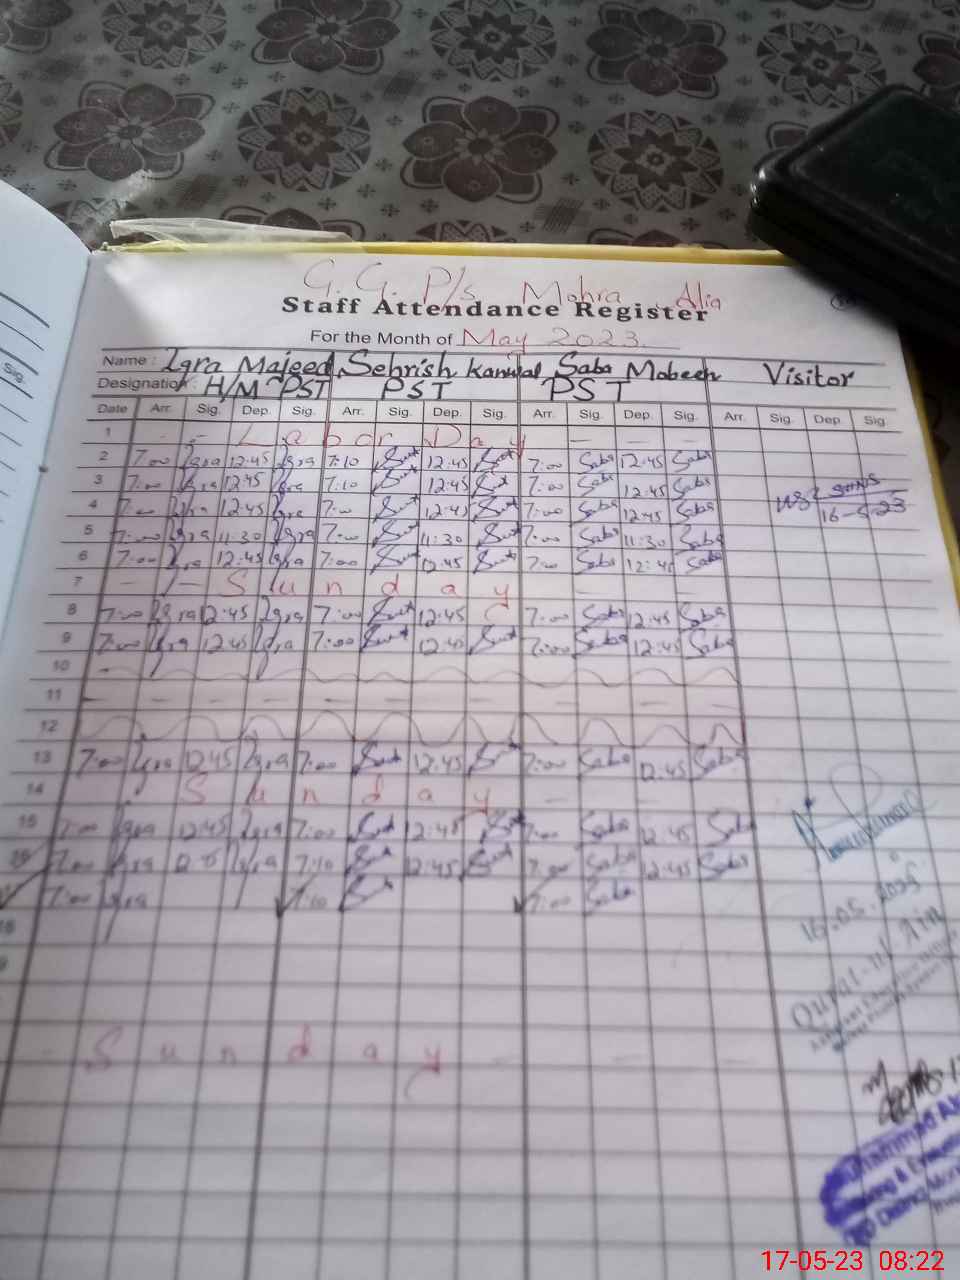 Sig.
G. G. P/s Mohra Alia
Staff Attendance Register
For the Month of May 2023.
Name : Iqra Majeed Sehrish Kanwal Saba Mobeen Visitor
Designation : H/M PST PST PST
Date Arr. Sig. Dep. Sig. Arr. Sig. Dep. Sig. Arr. Sig. Dep. Sig. Arr. Sig. Dep. Sig.
1 - - Labor Day - - -
2 7:00 Iqra 12:45 Iqra 7:10 12:45 7:00 Saba 12:45 Saba
3 7:00 Iqra 12:45 Iqra 7:10 12:45 7:00 Saba 12:45 Saba
4 7:00 Iqra 12:45 Iqra 7:00 12:45 7:00 Saba 12:45 Saba
16-5-23
5 7:00 Iqra 11:30 Iqra 7:00 11:30 7:00 Saba 11:30 Saba
6 7:00 Iqra 12:45 Iqra 7:00 12:45 7:00 Saba 12:45 Saba
7 - - Sunday - -
8 7:00 Iqra 12:45 Iqra 7:00 12:45 7:00 Saba 12:45 Saba
9 7:00 Iqra 12:45 Iqra 7:00 12:45 7:00 Saba 12:45 Saba
10
11
12
13 7:00 Iqra 12:45 Iqra 7:00 12:45 7:00 Saba 12:45 Saba
14 Sunday - -
15 7:00 Iqra 12:45 Iqra 7:00 12:45 7:00 Saba 12:45 Saba
7:00 Iqra Iqra 7:10 12:45 7:00 Saba 12:45 Saba
7:00 Iqra 7:10 7:00 Saba
16.05.2023
Qurat-ul-Ain
Sunday - - -
17-05-23 08:22